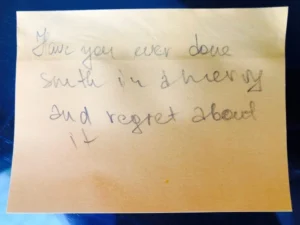 Have you ever done
smth in a hurry
and regret about
it